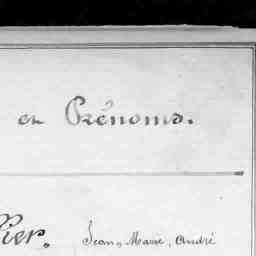 et Prénoms.
ier. Jean, Marie, André